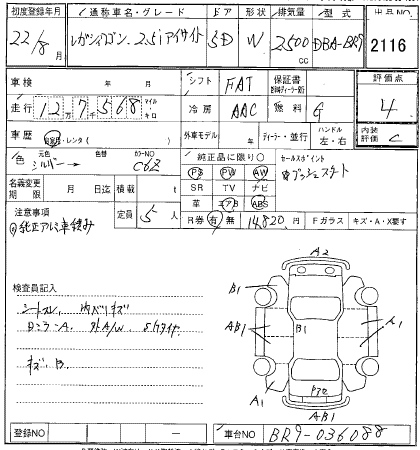 初度登録年月 通称車名・グレード ドア 形状 排気量 型式 出品NO
22/8月 レガシィワゴン 2.5iアイサイト 5D W 2500cc DBA-BR9 2116
車検 年 月 シフト FAT 保証書 評価点
走行 12万7千568 マイル キロ 冷房 AAC 燃料 G 4
車歴 自家用・レンタ( ) 外車モデル ディーラー・並行 ハンドル 左・右 内装評価 C
色 元色 シルバー → 色替 カラーNO C6Z 純正品に限り○ セールスポイント
PS PW AW プッシュスタート
名義変更期限 月 日迄 積載 t SR TV ナビ
定員 5人 革 エアB ABS
注意事項 R券 有 無 14,820円 Fガラス キズ・A・X要す
純正アルミ車積み
検査員記入
シートスレ 内ハリキズ
Dミラー A.
キズ・B
A2
B1
AB1 B1 A1
A1
AB1
登録NO 車台NO BR9-036088